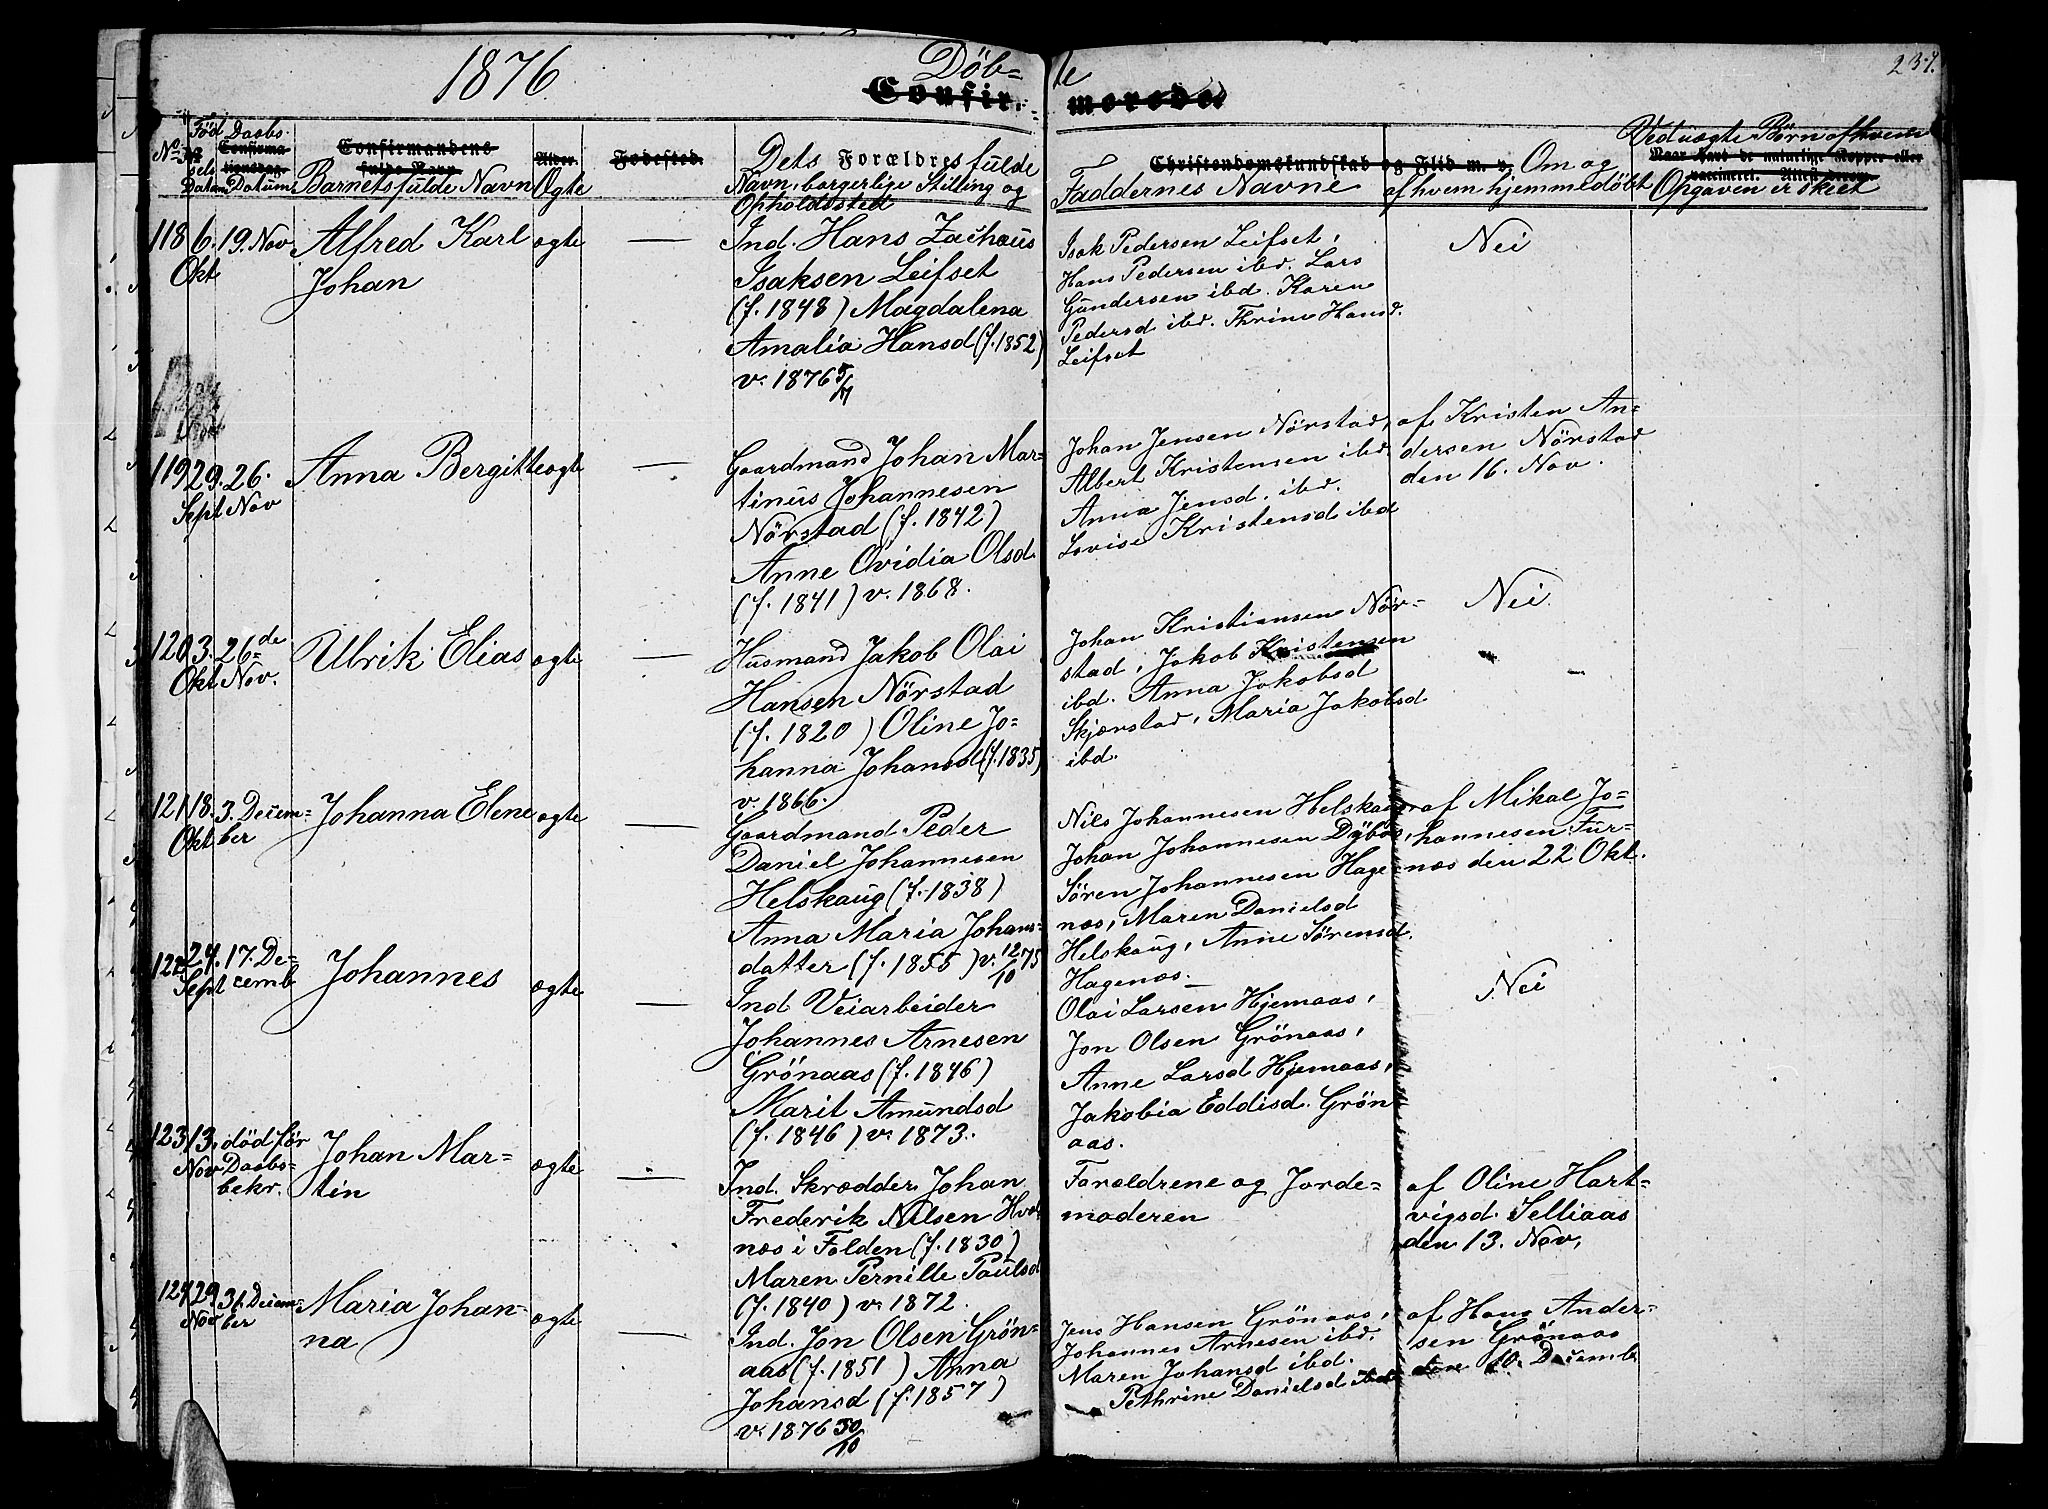 1876
Döb=
te
237.
Confir=
merede.
No.
Föd
sels
Datum
Daabs-
Confirma-
tionsdag.
Datum
Confirmandens
fulde Navn.
Barnets fulde Navn
Alder.
Ægte
Fødested.
Dets Forældres fulde
Navn, borgerlige Stilling og
Opholdssted
Christendomskundskab og Flid m. v.
Faddernes Navne
Om og
af hvem hjemmedøbt
Ved uægte Børn af hvem
Naar samt de naturlige Kopper eller
vaccineret. Attest derom.
Opgaven er skeet
118
6.
Okt
19. Nov
Alfred Karl
Johan
ægte
Ind. Hans Zachæus
Isaksen Leifset
(f. 1848) Magdalena
Amalia Hansd (f. 1852)
v. 1876 5/7
Isak Pedersen Leifset,
Hans Pedersen ibd. Lars
Gundersen ibd. Karen
Pedersd ibd. Thrine Hansd.
Leifset
Nei
119
29.
Sept
26.
Nov
Anna Bergitte
ægte
Gaardmand Johan Mar=
tinus Johannesen
Nörstad (f. 1842)
Anne Ovidia Olsd.
(f. 1841) v. 1868.
Johan Jensen Nörstad,
Albert Kristensen ibd
Anna Jensd. ibd.
Lovise Kristensd ibd
af Kristen An=
dersen Nörstad
den 16. Nov.
120
3.
Okt
26de
Nov.
Ulrik Elias
ægte
Husmand Jakob Olai
Hansen Nörstad
(f. 1820) Oline Jo=
hanna Johansd (f. 1835)
v. 1866.
Johan Kristiansen Nör=
stad, Jakob Kristensen
ibd. Anna Jakobsd
Skjærstad, Maria Jakobsd
ibd.
Nei.
121
18.
Okt
3. Decem=
ber
Johanna Elene
ægte
Gaardmand Peder
Daniel Johannesen
Helskaug (f. 1838)
Anna Maria Johans=
datter (f. 1855) v. 12/10 75
Nils Johannesen Helskaug
Johan Johannesen Dybos,
Sören Johannesen Hage=
næs, Maren Danielsd
Helskaug, Anne Sörensd.
Hagenæs
af Mikal Jo=
hannesen Fur=
næs den 22 Okt.
122
24.
Sept
17. De=
cemb
Johannes
ægte
Ind Veiarbeider
Johannes Arnesen
Grönaas (f. 1846)
Marit Amundsd
(f. 1846) v. 1873.
Olai Larsen Hjemaas,
Jon Olsen Grönaas,
Anne Larsd Hjemaas,
Jakobia Eddisd. Grön
aas.
Nei
123
13.
Nov
död før
Daabs=
bekr.
Johan Mar=
tin
ægte
Ind. Skrædder Johan
Frederik Nilsen Hval
næs i Folden (f. 1830)
Maren Pernille Paulsd
(f. 1840) v. 1872.
Forældrene og Jorde=
moderen
af Oline Hart=
vigsd. Selliaas
den 13. Nov.
124
29
Nov
31. Decem=
ber
Maria Johan=
na
ægte
Ind. Jon Olsen Grön=
aas (f. 1851) Anna
Johansd (f. 1857)
v. 1876 30/10
Jens Hansen Grönaas,
Johannes Arnesen ibd.
Maren Johansd ibd.
Pethrine Danielsd ibd
af Hans Ander=
sen Grönaas
den 10. Decemb